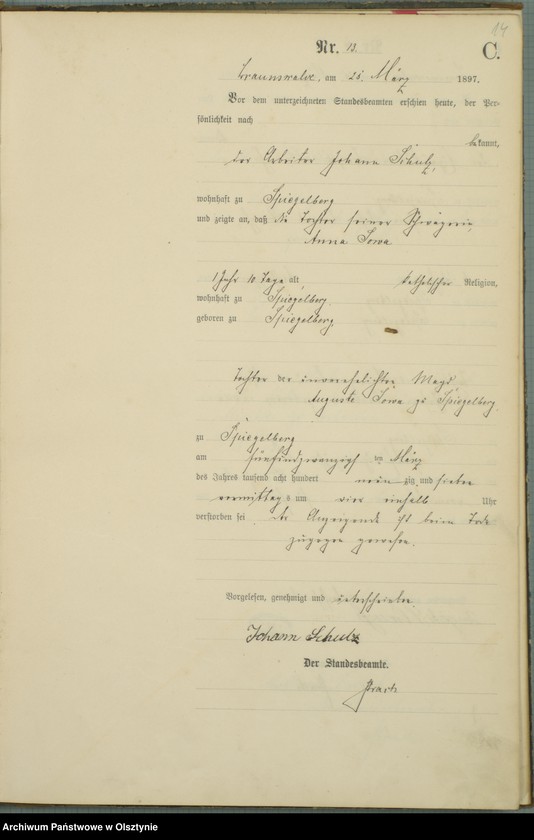 14
Nr. 13.
C.
Braunswalde, am 26. März 1897.
Vor dem unterzeichneten Standesbeamten erschien heute, der Per-
sönlichkeit nach
bekannt,
der Arbeiter Johann Schulz,
wohnhaft zu Spiegelberg
und zeigte an, daß die Tochter seiner Schwägerin,
Anna Sowa
1 Jahr 10 Tage alt katholischer Religion,
wohnhaft zu Spiegelberg
geboren zu Spiegelberg,
Tochter der unverehelichten Magd
Auguste Sowa zu Spiegelberg.
zu Spiegelberg
am fünfundzwanzigsten März
des Jahres tausend acht hundert neunzig und sieben
vormittags um vier einhalb Uhr
verstorben sei. Der Anzeigende ist beim Tode
zugegen gewesen.
Vorgelesen, genehmigt und unterschrieben.
Johann Schulz
Der Standesbeamte.
Archiwum Państwowe w Olsztynie